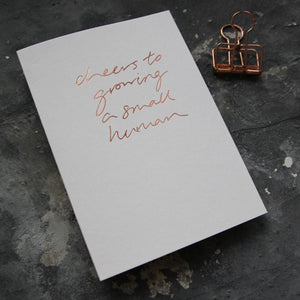 cheers to
growing
a small
human